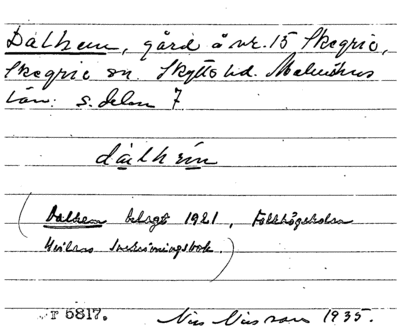 Dalhem, gård å nr. 15 Skegrie,
Skegrie sn. Skytts hd. Malmöhus
län. s. delen 7
dalhem
(Dalhem belagt 1921, Folkhögskolan
Hvilans inskrivningsbok.)
F 5817. Nils Nilsson 1935.